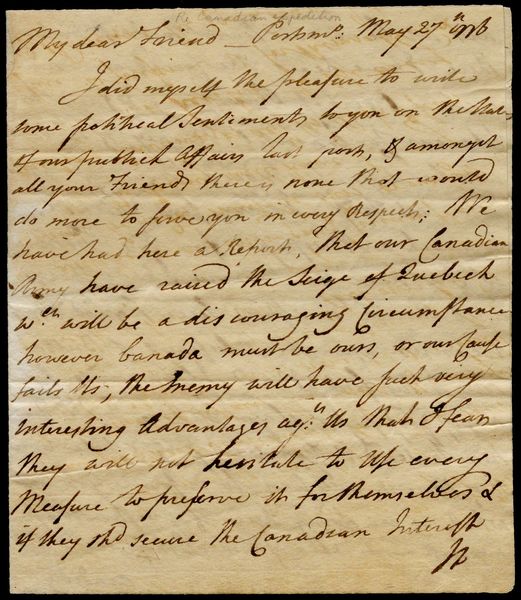 Re Canadian expedition
My dear Friend _ Portsmo. May 27th 1776
I did myself the pleasure to write
some political Sentiments to you on the State
of our publick Affairs last post, & amongst
all your Friends there is none that would
do more to serve you in every Respect; We
have had here a Report, that our Canadian
Army have raised the Seige of Quebeck
wch will be a discouraging Circumstance
however Canada must be ours, or our Cause
fails Us, the Enemy will have such very
interesting Advantages agt Us that I fear
they will not hesitate to Use every
Measure to preserve it for themselves &
if they shd secure the Canadian Interest